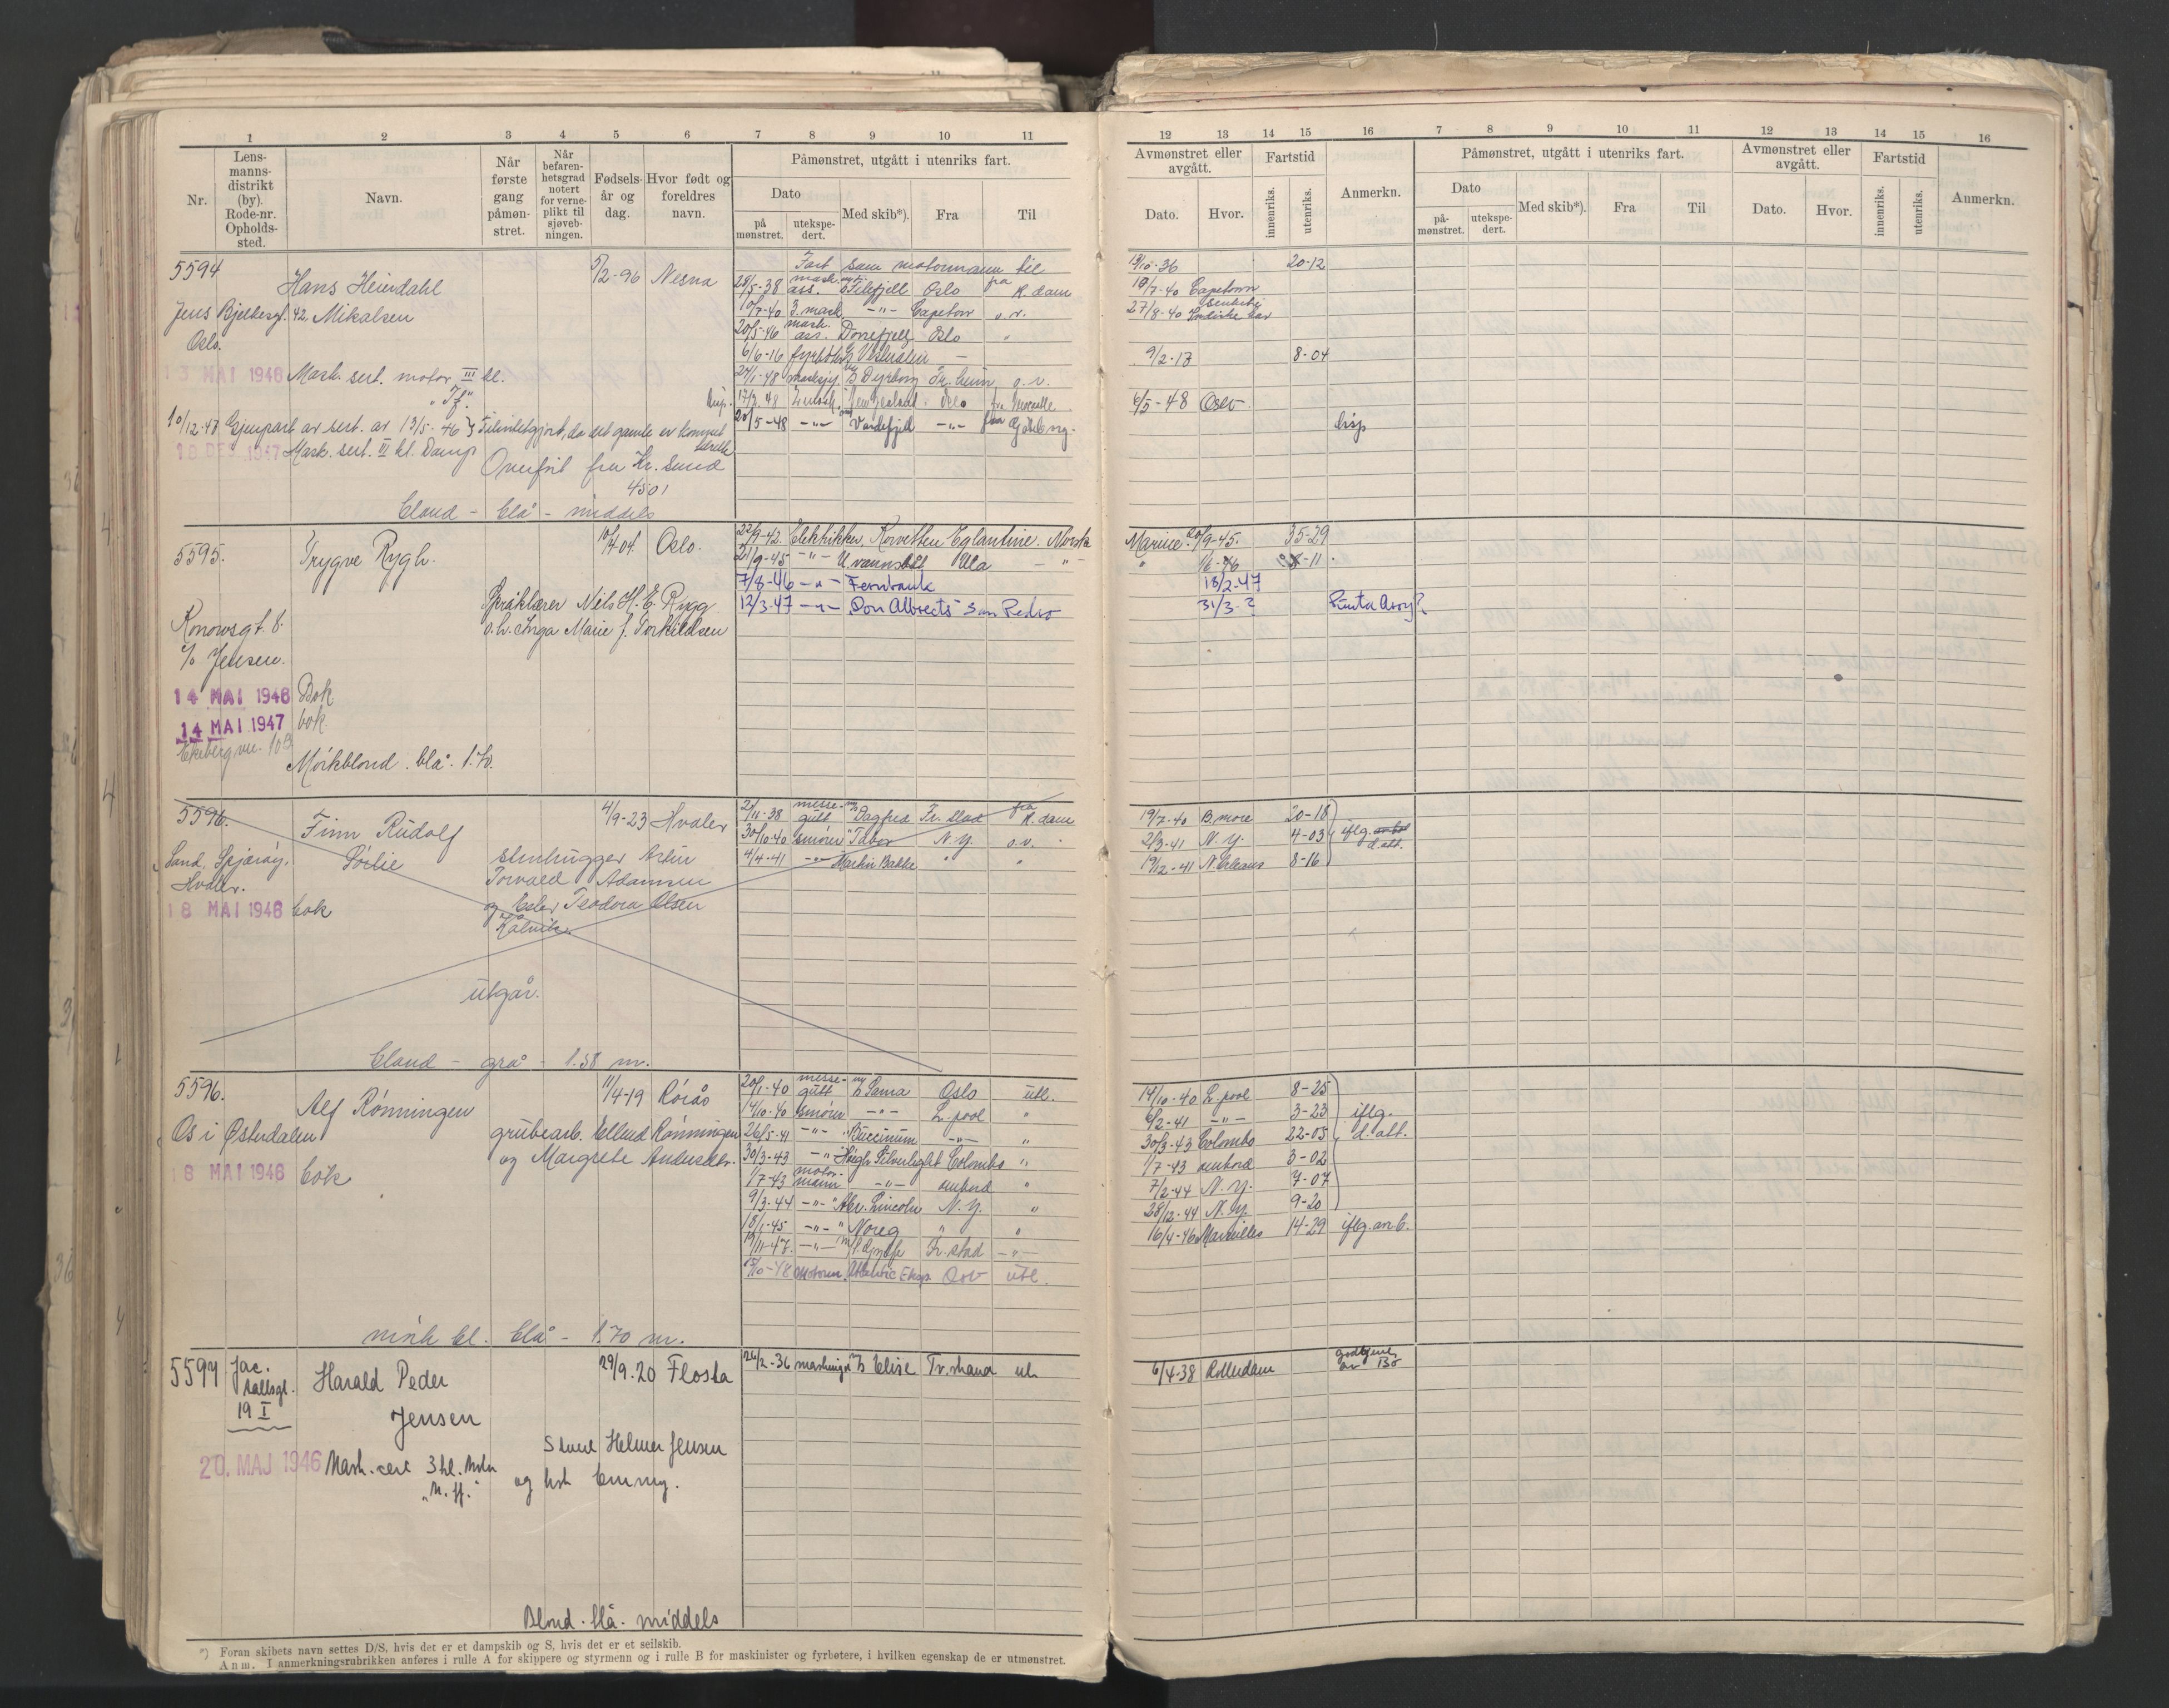 1 2 3 4 5 6 7 8 9 10 11
Nr.
Lens-
manns-
distrikt
(by).
Rode-nr.
Opholds-
sted.
Navn.
Når
første
gang
påmøn-
stret.
Når
befaren-
hetsgrad
notert
for verne-
plikt til
sjøveb-
ningen.
Fødsels-
år og
dag.
Hvor født og
foreldres
navn.
Påmønstret, utgått i utenriks fart.
Dato
på
mønstret.
utekspe-
dert.
Med skib*).
Fra
Til
12 13 14 15 16 7 8 9 10 11 12 13 14 15 16
Avmønstret eller
avgått.
Dato. Hvor.
Fartstid
innenriks.
utenriks.
Anmerkn.
Påmønstret, utgått i utenriks fart.
Dato
på-
mønstret.
utekspe-
dert.
Med skib*).
Fra
Til
Avmønstret eller
avgått.
Dato. Hvor.
Fartstid
innenriks.
utenriks.
Anmerkn.
5594
Hans Heierdahl
Mikalsen
5/2-96 Nesna
Jens Bjelkesgt. 42
Oslo.
13 MAI 1946 Mask. sert. motor III kl.
10/12-47 Gjenpart av sert. av 13/5-46
18 DES. 1947 Mask. sert. III kl. Damp
Overført fra Kr. sund
4501
blond - blå - middels
Fart som motormann til 19/10-36 20-12
28/5-38 mask. ass. Filefjell Oslo fra R.dam 10/7-40 Capetown
10/7-40 3. mask. -"- Capetown o.v. 27/8-40
20/5-46 mask. ass. Dovrefjell Oslo "
6/6-16 fyrbøter - 9/2-17 8-04
24/1-48 Dyrborg Tr.heim o.v. 6/5-48 Oslo
17/2-48 New Zealand Oslo
20/5-48 -"- Vardefjell -"- fra Gøteborg.
5595.
Trygve Rygh.
10/4-04. Oslo.
Språklærer Nils H. E. Rygg
o.h. Inga Marie f. Torkildsen
Konowsgt. 8.
c/o Jensen.
14 MAI 1946 Bok
14 MAI 1947 bok
Ekebergvn. 10B
Mørkblond. blå. 1.70.
22/9-42 Elektriker, Korvetten Eglantine. Norsk Marine. 20/9-45. 35-29
21/9-45 -"- U.vannsbåt Ula -"- 1/6-46
7/8-46 -"- Fernbank 18/2-47
12/3-47 -"- Don Albrects San Pedro 31/3-?
5596.
Finn Rudolf
Sørlie
4/9-23 Hvaler
Sand, Spjærøy,
Hvaler.
stenhugger
Torvald Adamsen
og Ester Teodora Olsen
18 MAI 1946 bok
utgår.
blond - grå - 1.58 m.
2/11-38 messe-gutt Dagfred Fr.stad fra R.dam 19/7-40 B.more 20-18
30/10-40 smører "Tabor N.Y. o.v. 2/3-41 N.Y. 4-03 iflg. d.att.
4/4-41 -"- Martin Bakke " " 19/12-41 N.Orleans 8-16
5596.
Alf Rønningen
11/4-19 Røros
Os i Østerdalen
grubearb. Ellend Rønningen
og Margrete Andersdtr.
18 MAI 1946 bok
mørk bl. blå - 1.70 m.
20/1-40 messe-gutt Sama Oslo utl. 14/10-40 L.pool 8-25
14/10-40 smører -"- L.pool " 6/2-41 -"- 3-23 iflg.
26/5-41 -"- "Buccinum -"- " 30/3-43 Colombo 22-05 d.att.
30/3-43 -"- Høegh Silverlight Colombo " 1/7-43 ombord 3-02
1/7-43 motor-mann -"- ombord " 7/2-44 N.Y. 7-07
9/3-44 -"- "Abr. Lincoln N.Y. " 28/12-44 N.Y. 9-20
18/1-45 -"- " Noreg " " 16/4-46 Marseilles 14-29 iflg. avb.
19/11-47. -"- Fr.stad -"-
15/10-48 motorm. Atlantic Oslo utl.
5597
Jac.
Aallsgt.
19 I
Harald Peder
Jensen
29/9.20 Flosta
Helmer Jensen
og hst Emmy.
20. MAJ 1946 Mask. cert 3 kl. Motor
Blond. blå. middels
26/2-36 Elise Tv.strand utl. 6/4-38 Rotterdam godkjent
*) Foran skibets navn settes D/S, hvis det er et dampskib og S, hvis det er et seilskib.
Anm. I anmerkningsrubrikken anføres i rulle A for skippere og styrmenn og i rulle B for maskinister og fyrbøtere, i hvilken egenskap de er utmønstret.